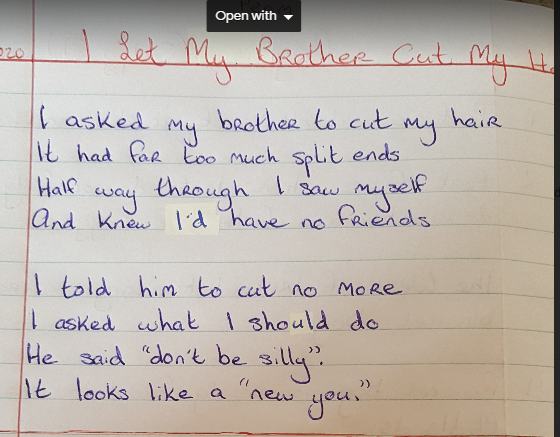 Open with
020
I Let My Brother Cut My
I asked my brother to cut my hair
It had far too much split ends
Half way through I saw myself
And knew I'd have no friends
I told him to cut no more
I asked what I should do
He said "don't be silly".
It looks like a "new you."